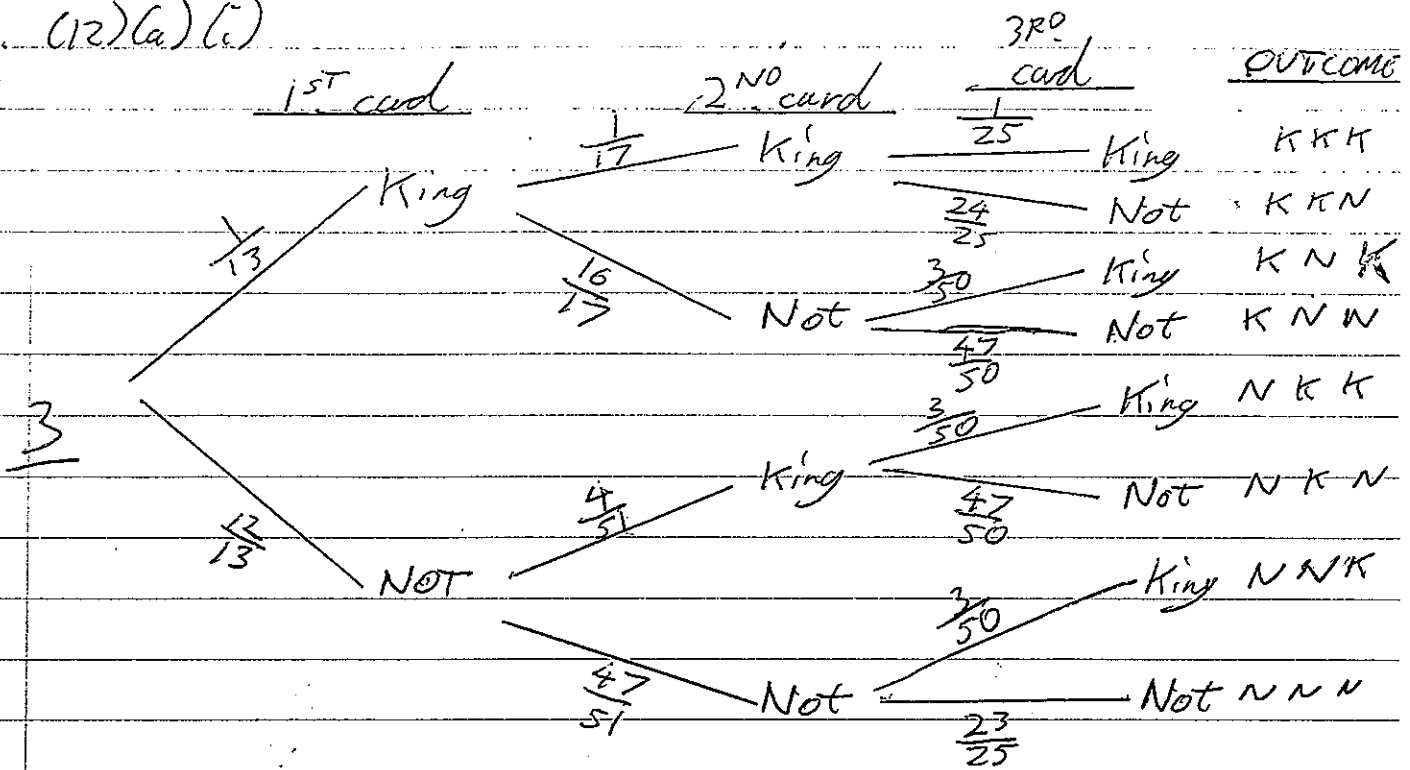 (12)(a)(i)
1ST card 2ND card 3RD card OUTCOME
1/13 King 1/17 King 1/25 King KKK
24/25 Not KKN
16/17 Not 3/50 King KNK
47/50 Not KNN
3
12/13 NOT 4/51 King 3/50 King NKK
47/50 Not NKN
47/51 Not 3/50 King NNK
23/25 Not NNN